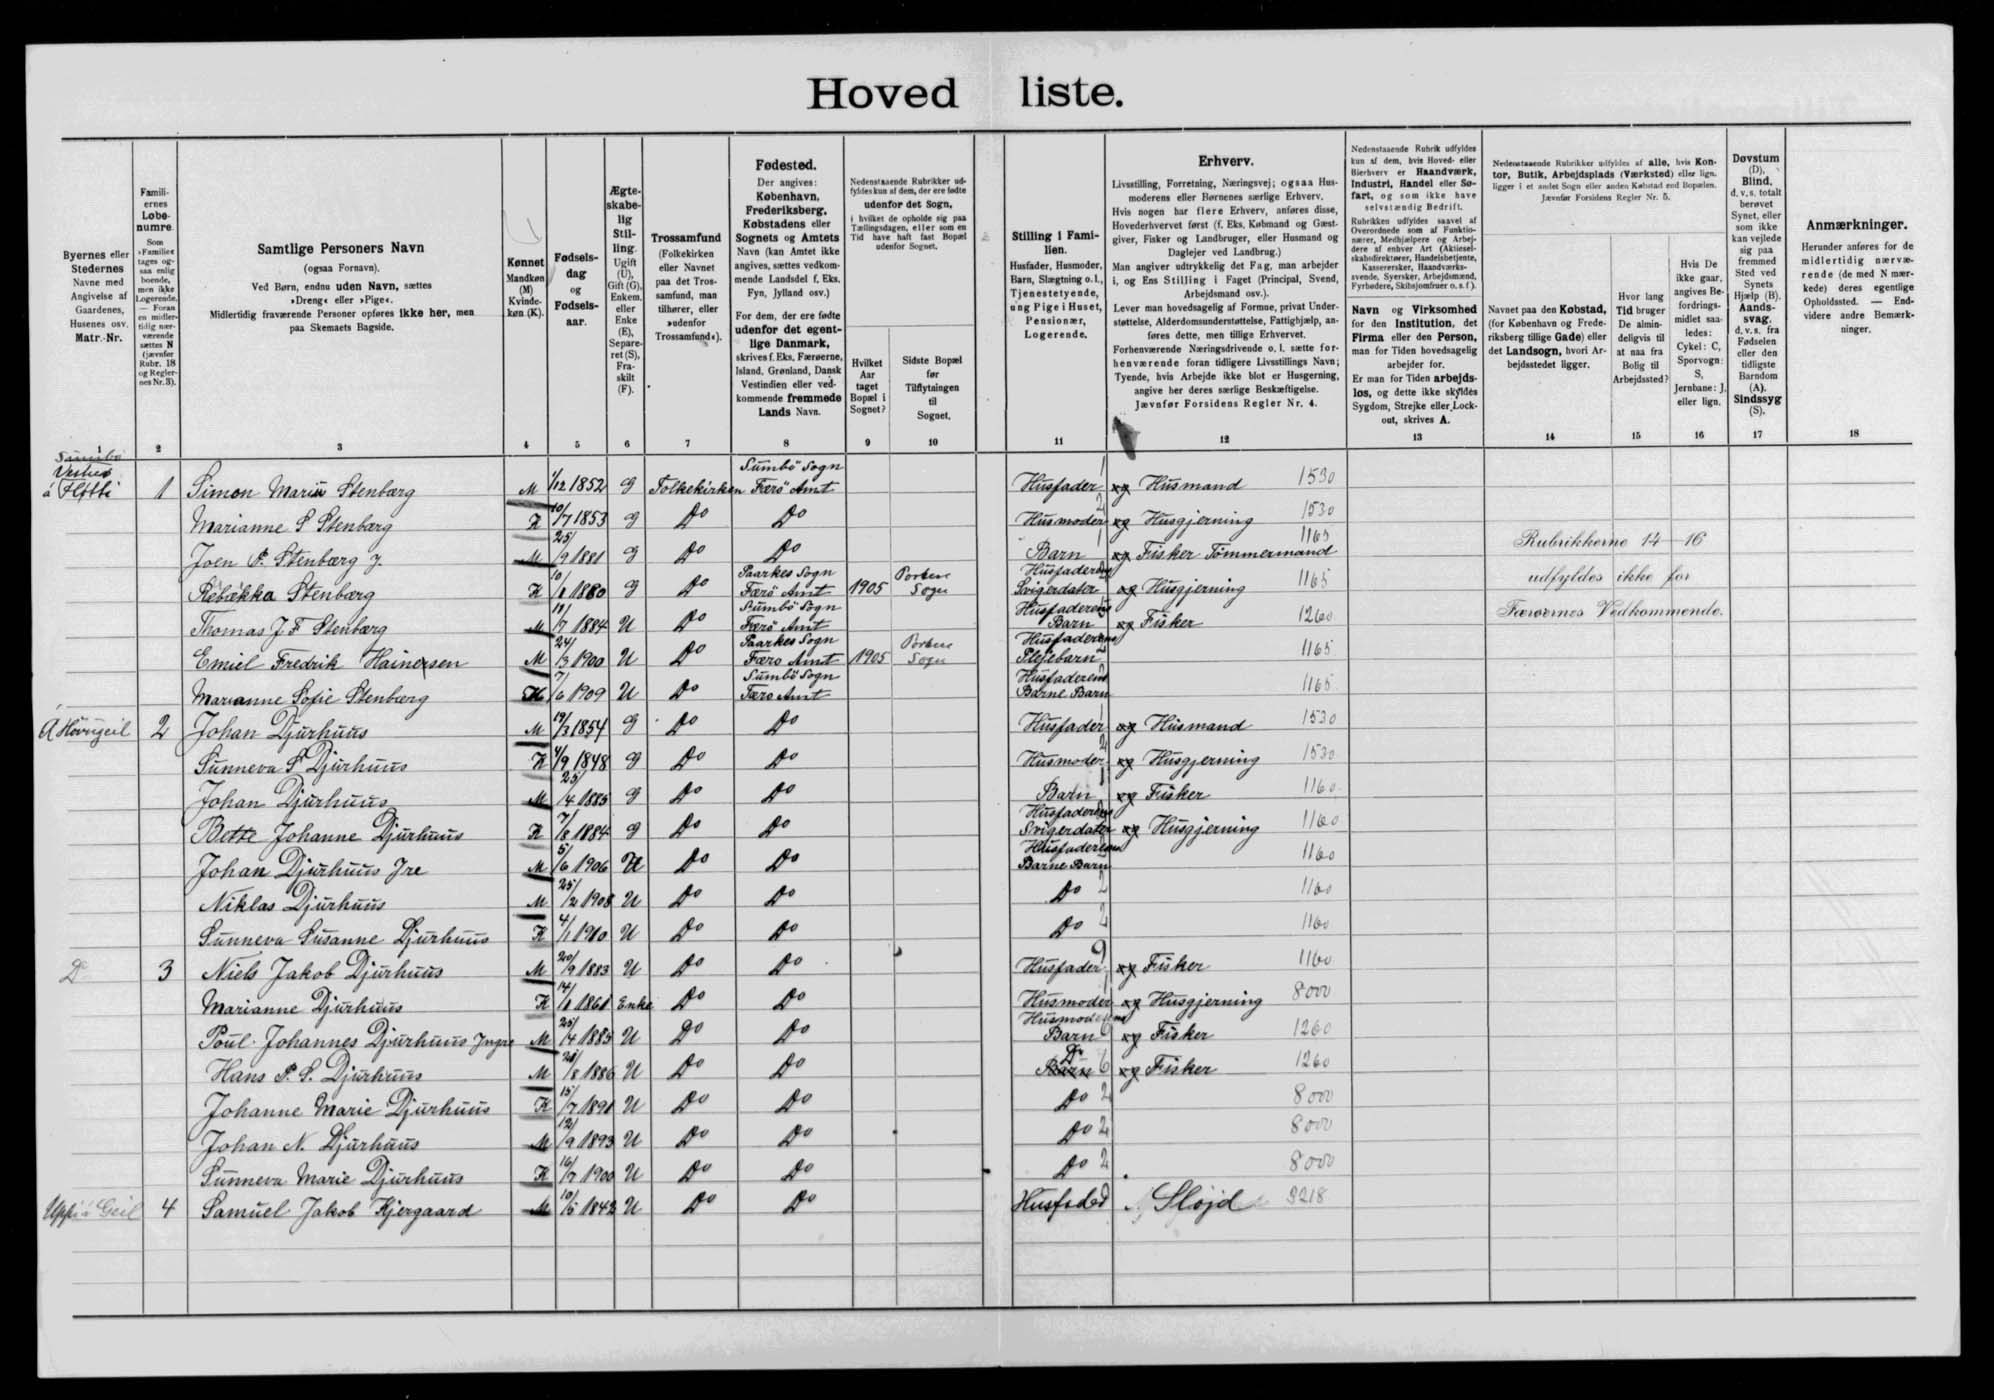 Hovedliste.
Byernes eller Stedernes Navne med Angivelse af Gaardenes, Husenes osv. Matr.-Nr.
Familiernes Løbenumre. Som »Familie« tages ogsaa enlig boende, men ikke Logerende. — Foran en midlertidig nærværende sættes N (jævnfør Rubr. 18 og Reglernes Nr. 3).
Samtlige Personers Navn (ogsaa Fornavn). Ved Børn, endnu uden Navn, sættes »Dreng« eller »Pige«. Midlertidig fraværende Personer opføres ikke her, men paa Skemaets Bagside.
Kønnet Mandkøn (M) Kvindekøn (K).
Fødselsdag og Fødselsaar.
Ægteskabelig Stilling. Ugift (U), Gift (G), Enkem. eller Enke (E), Separeret (S), Fraskilt (F).
Trossamfund (Folkekirken eller Navnet paa det Trossamfund, man tilhører, eller »udenfor Trossamfund«).
Fødested. Der angives: København, Frederiksberg, Købstadens eller Sognets og Amtets Navn (kan Amtet ikke angives, sættes vedkommende Landsdel f. Eks. Fyn, Jylland osv.) For dem, der ere fødte udenfor det egentlige Danmark, skrives f. Eks. Færøerne, Island, Grønland, Dansk Vestindien eller vedkommende fremmede Lands Navn.
Nedenstaaende Rubrikker udfyldes kun af dem, der ere fødte udenfor det Sogn, i hvilket de opholde sig paa Tællingsdagen, eller som en Tid have haft fast Bopæl udenfor Sognet.
Hvilket Aar taget Bopæl i Sognet?
Sidste Bopæl før Tilflytningen til Sognet.
Stilling i Familien. Husfader, Husmoder, Barn, Slægtning o. l., Tjenestetyende, ung Pige i Huset, Pensionær, Logerende.
Erhverv.
Livsstilling, Forretning, Næringsvej; ogsaa Husmoderens eller Børnenes særlige Erhverv.
Hvis nogen har flere Erhverv, anføres disse, Hovederhvervet først (f. Eks. Købmand og Gæstgiver, Fisker og Landbruger, eller Husmand og Daglejer ved Landbrug.)
Man angiver udtrykkelig det Fag, man arbejder i, og Ens Stilling i Faget (Principal, Svend, Arbejdsmand osv.).
Lever man hovedsagelig af Formue, privat Understøttelse, Alderdomsunderstøttelse, Fattighjælp, anføres dette, men tillige Erhvervet.
Forhenværende Næringsdrivende o. l. sætte forhenværende foran tidligere Livsstillings Navn; Tyende, hvis Arbejde ikke blot er Husgerning, angive her deres særlige Beskæftigelse.
Jævnfør Forsidens Regler Nr. 4.
Nedenstaaende Rubrik udfyldes kun af dem, hvis Hoved- eller Bierhverv er Haandværk, Industri, Handel eller Søfart, og som ikke have selvstændig Bedrift.
Rubrikken udfyldes saavel af Overordnede som af Funktionærer, Medhjælpere og Arbejdere af enhver Art (Aktieselskabsdirektører, Handelsbetjente, Kasserersker, Haandværkssvende, Syersker, Arbejdsmænd, Fyrbødere, Skibsjomfruer o. s. f.).
Navn og Virksomhed for den Institution, det Firma eller den Person, man for Tiden hovedsagelig arbejder for.
Er man for Tiden arbejdsløs, og dette ikke skyldes Sygdom, Strejke eller Lockout, skrives A.
Nedenstaaende Rubrikker udfyldes af alle, hvis Kontor, Butik, Arbejdsplads (Værksted) eller lign. ligger i et andet Sogn eller anden Købstad end Bopælen. Jævnfør Forsidens Regler Nr. 5.
Navnet paa den Købstad, (for København og Frederiksberg tillige Gade) eller det Landsogn, hvori Arbejdsstedet ligger.
Hvor lang Tid bruger De almindeligvis til at naa fra Bolig til Arbejdssted?
Hvis De ikke gaar, angives Befordringsmidlet saaledes: Cykel: C, Sporvogn: S, Jernbane: J, eller lign.
Døvstum (D), Blind, d. v. s. totalt berøvet Synet, eller som ikke kan vejlede sig paa fremmed Sted ved Synets Hjælp (B). Aandssvag. d. v. s. fra Fødselen eller den tidligste Barndom (A). Sindssyg (S).
Anmærkninger. Herunder anføres for de midlertidig nærværende (de med N mærkede) deres egentlige Opholdssted. — Endvidere andre Bemærkninger.
2 3 4 5 6 7 8 9 10 11 12 13 14 15 16 17 18
Sumbø
Vestur á Fløtti 1 Simon Marius Stenbærg M 1/12 1852 G Folkekirken Sumbö Sogn Færö Amt Husfader 1 og Husmand 1530
Marianne S Stenbærg K 10/7 1853 G Do Do Husmoder 2 og Husgjerning 1530
Joen P. Stenbærg J. M 25/9 1881 G Do Do Barn 1 og Fisker Tömmermand 1165 Rubrikkerne 14–16
Rebækka Stenbærg K 10/8 1880 G Do Paarkes Sogn Færö Amt 1905 Porkere Sogn Husfaderens Svigerdater og Husgjerning 1165 udfyldes ikke for
Thomas J F Stenbærg M 19/7 1884 U Do Sumbö Sogn Færö Amt Husfaderens Barn og Fisker 1260 Færøernes Vedkommende.
Emiel Fredrik Hainersen M 24/3 1900 U Do Paarkes Sogn Færo Amt 1905 Porkere Sogn Husfaderens Plejebarn 1165
Marianne Sofie Stenbærg K 7/6 1909 U Do Sumbö Sogn Færo Amt Husfaderens Barne Barn 1165
Á Hövugeil 2 Johan Djurhuus M 19/3 1854 G Do Do Husfader 1 og Husmand 1530
Sunneva S Djurhuus K 4/9 1848 G Do Do Husmoder 2 og Husgjerning 1530
Johan Djurhuus M 25/4 1885 G Do Do Barn 1 og Fisker 1160
Bette Johanne Djurhuus K 7/8 1884 G Do Do Husfaderens Svigerdater og Husgjerning 1160
Johan Djurhuus Jre M 5/6 1906 U Do Do Husfaderens Barne Barn 1160
Niklas Djurhuus M 25/2 1908 U Do Do Do 2 1160
Sunneva Susanne Djurhuus K 4/1 1910 U Do Do Do 2 1160
Do 3 Niels Jakob Djurhuus M 20/9 1883 U Do Do Husfader og Fisker 1160
Marianne Djurhuus K 14/8 1861 Enke Do Do Husmoder og Husgjerning 8000
Poul Johannes Djurhuus Jngre M 25/4 1885 U Do Do Husmoderens Barn 6 og Fisker 1260
Hans P. S. Djurhuus M 28/8 1886 U Do Do Do Barn 6 og Fisker 1260
Johanne Marie Djurhuus K 15/7 1891 U Do Do Do 2 8000
Johan N. Djurhuus M 12/9 1893 U Do Do Do 2 8000
Sunneva Marie Djurhuus K 16/7 1900 U Do Do Do 2 8000
Uppi á Geil 4 Samuel Jakob Kjergaard M 10/5 1842 U Do Do Husfader Sløjd 3218